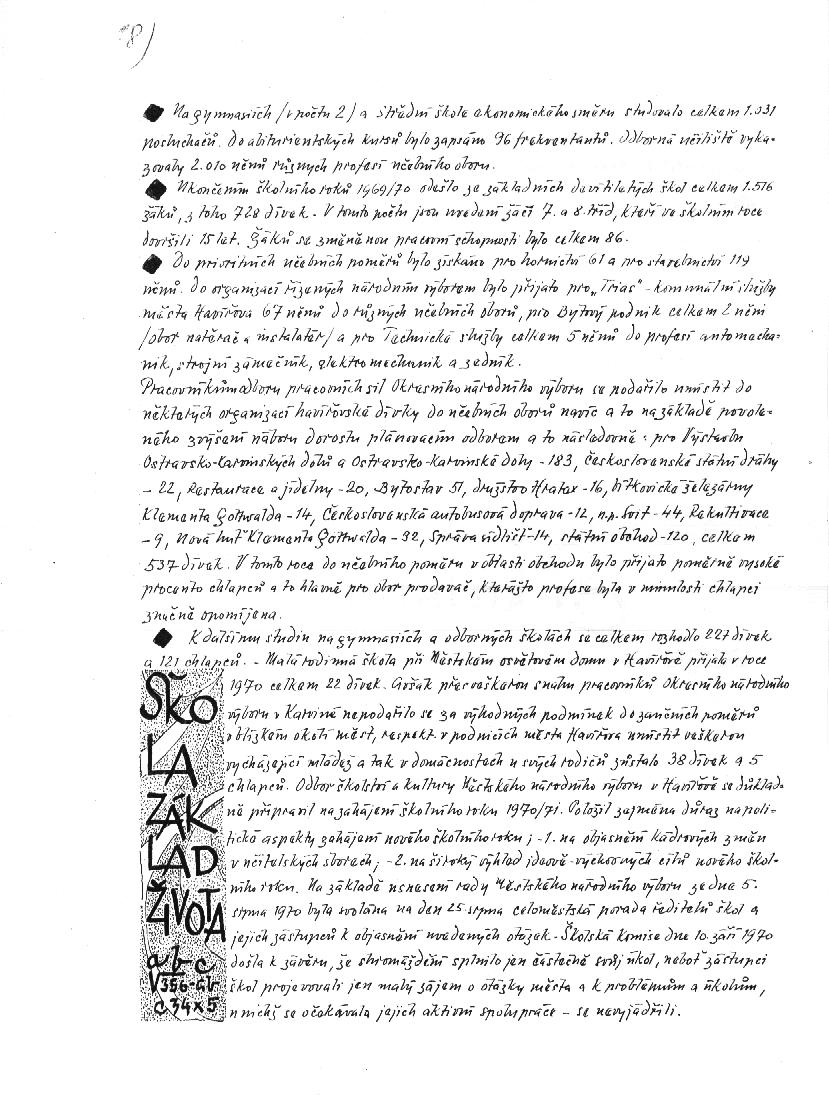 98)
◆ Na gymnasiích /v počtu 2/ a Střední škole ekonomického směru studovalo celkem 1.031
posluchačů. Do abiturientských kursů bylo zapsáno 96 frekventantů. Odborná učiliště vyka-
zovaly 2.010 učňů různých profesí učebního oboru.
◆ Ukončením školního roku 1969/70 odešlo ze základních devítiletých škol celkem 1.516
žáků, z toho 728 dívek. V tomto počtu jsou uvedeni žáci 7. a 8. tříd, kteří ve školním roce
dovršili 15 let. Žáků se změněnou pracovní schopností bylo celkem 86.
◆ Do prioritních učebních poměrů bylo získáno pro hornictví 61 a pro stavebnictví 119
učňů. Do organizací řízených národním výborem bylo přijato pro „Trias" - komunální služby
města Havířova 67 učňů do různých učebních oborů, pro Bytový podnik celkem 2 učni
/obor natěrač a instalatér/ a pro Technické služby celkem 5 učňů do profesí automecha-
nik, strojní zámečník, elektromechanik a zedník.
Pracovníkům odboru pracovních sil Okresního národního výboru se podařilo umístit do
některých organizací havířovské dívky do učebních oborů navíc a to na základě povole-
ného zvýšení náboru dorostu plánovacím odborem a to následovně: pro Výstavbu
Ostravsko-Karvinských dolů a Ostravsko-Karvinské doly - 183, Československé státní dráhy
- 22, Restaurace a jídelny - 20, Bytostav 51, družstvo Kratex - 16, Vítkovické železárny
Klementa Gottwalda - 14, Československá autobusová doprava - 12, n.p. Svit - 44, Rekultivace
- 9, Nová huť Klementa Gottwalda - 32, Správa sídlišť - 14, státní obchod - 120, celkem
537 dívek. V tomto roce do učebního poměru v oblasti obchodu bylo přijato poměrně vysoké
procento chlapců a to hlavně pro obor prodavač, kterážto profese byla v minulosti chlapci
značně opomíjena.
◆ K dalšímu studiu na gymnasiích a odborných školách se celkem rozhodlo 227 dívek
a 121 chlapců. - Malá rodinná škola při Městském osvětovém domu v Havířově přijala v roce
1970 celkem 22 dívek. Avšak přes veškerou snahu pracovníků Okresního národního
výboru v Karviné nepodařilo se za výhodných podmínek do zaučních poměrů
v blízkém okolí měst, respekt. v podnicích města Havířova umístit veškerou
vycházející mládež a tak v domácnostech u svých rodičů zůstalo 38 dívek a 5
chlapců. Odbor školství a kultury Městského národního výboru v Havířově se důklad-
ně připravil na zahájení školního roku 1970/71. Položil zejména důraz na poli-
tické aspekty zahájení nového školního roku; -1. na objasnění kádrových změn
v učitelských sborech; -2. na široký výhled ideově-výchovných cílů nového škol-
ního roku. Na základě usnesení rady Městského národního výboru ze dne 5.
srpna 1970 byla svolána na den 25. srpna celoměstská porada ředitelů škol a
jejich zástupců k objasnění uvedených otázek. - Školská komise dne 10. září 1970
došla k závěru, že shromáždění splnilo jen částečně svůj úkol, neboť zástupci
škol projevovali jen malý zájem o otázky města a k problémům a úkolům,
u nichž se očekávala jejich aktivní spolupráce - se nevyjádřili.
ŠKO
LA
ZÁK
LAD
ŽIVOTA
a b c
√356-ab
c 34x5